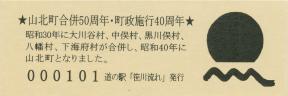 ★山北町合併50周年・町政施行40周年★
昭和30年に大川谷村、中俣村、黒川俣村、
八幡村、下海府村が合併し、昭和40年に
山北町となりました。
000101 道の駅「笹川流れ」発行